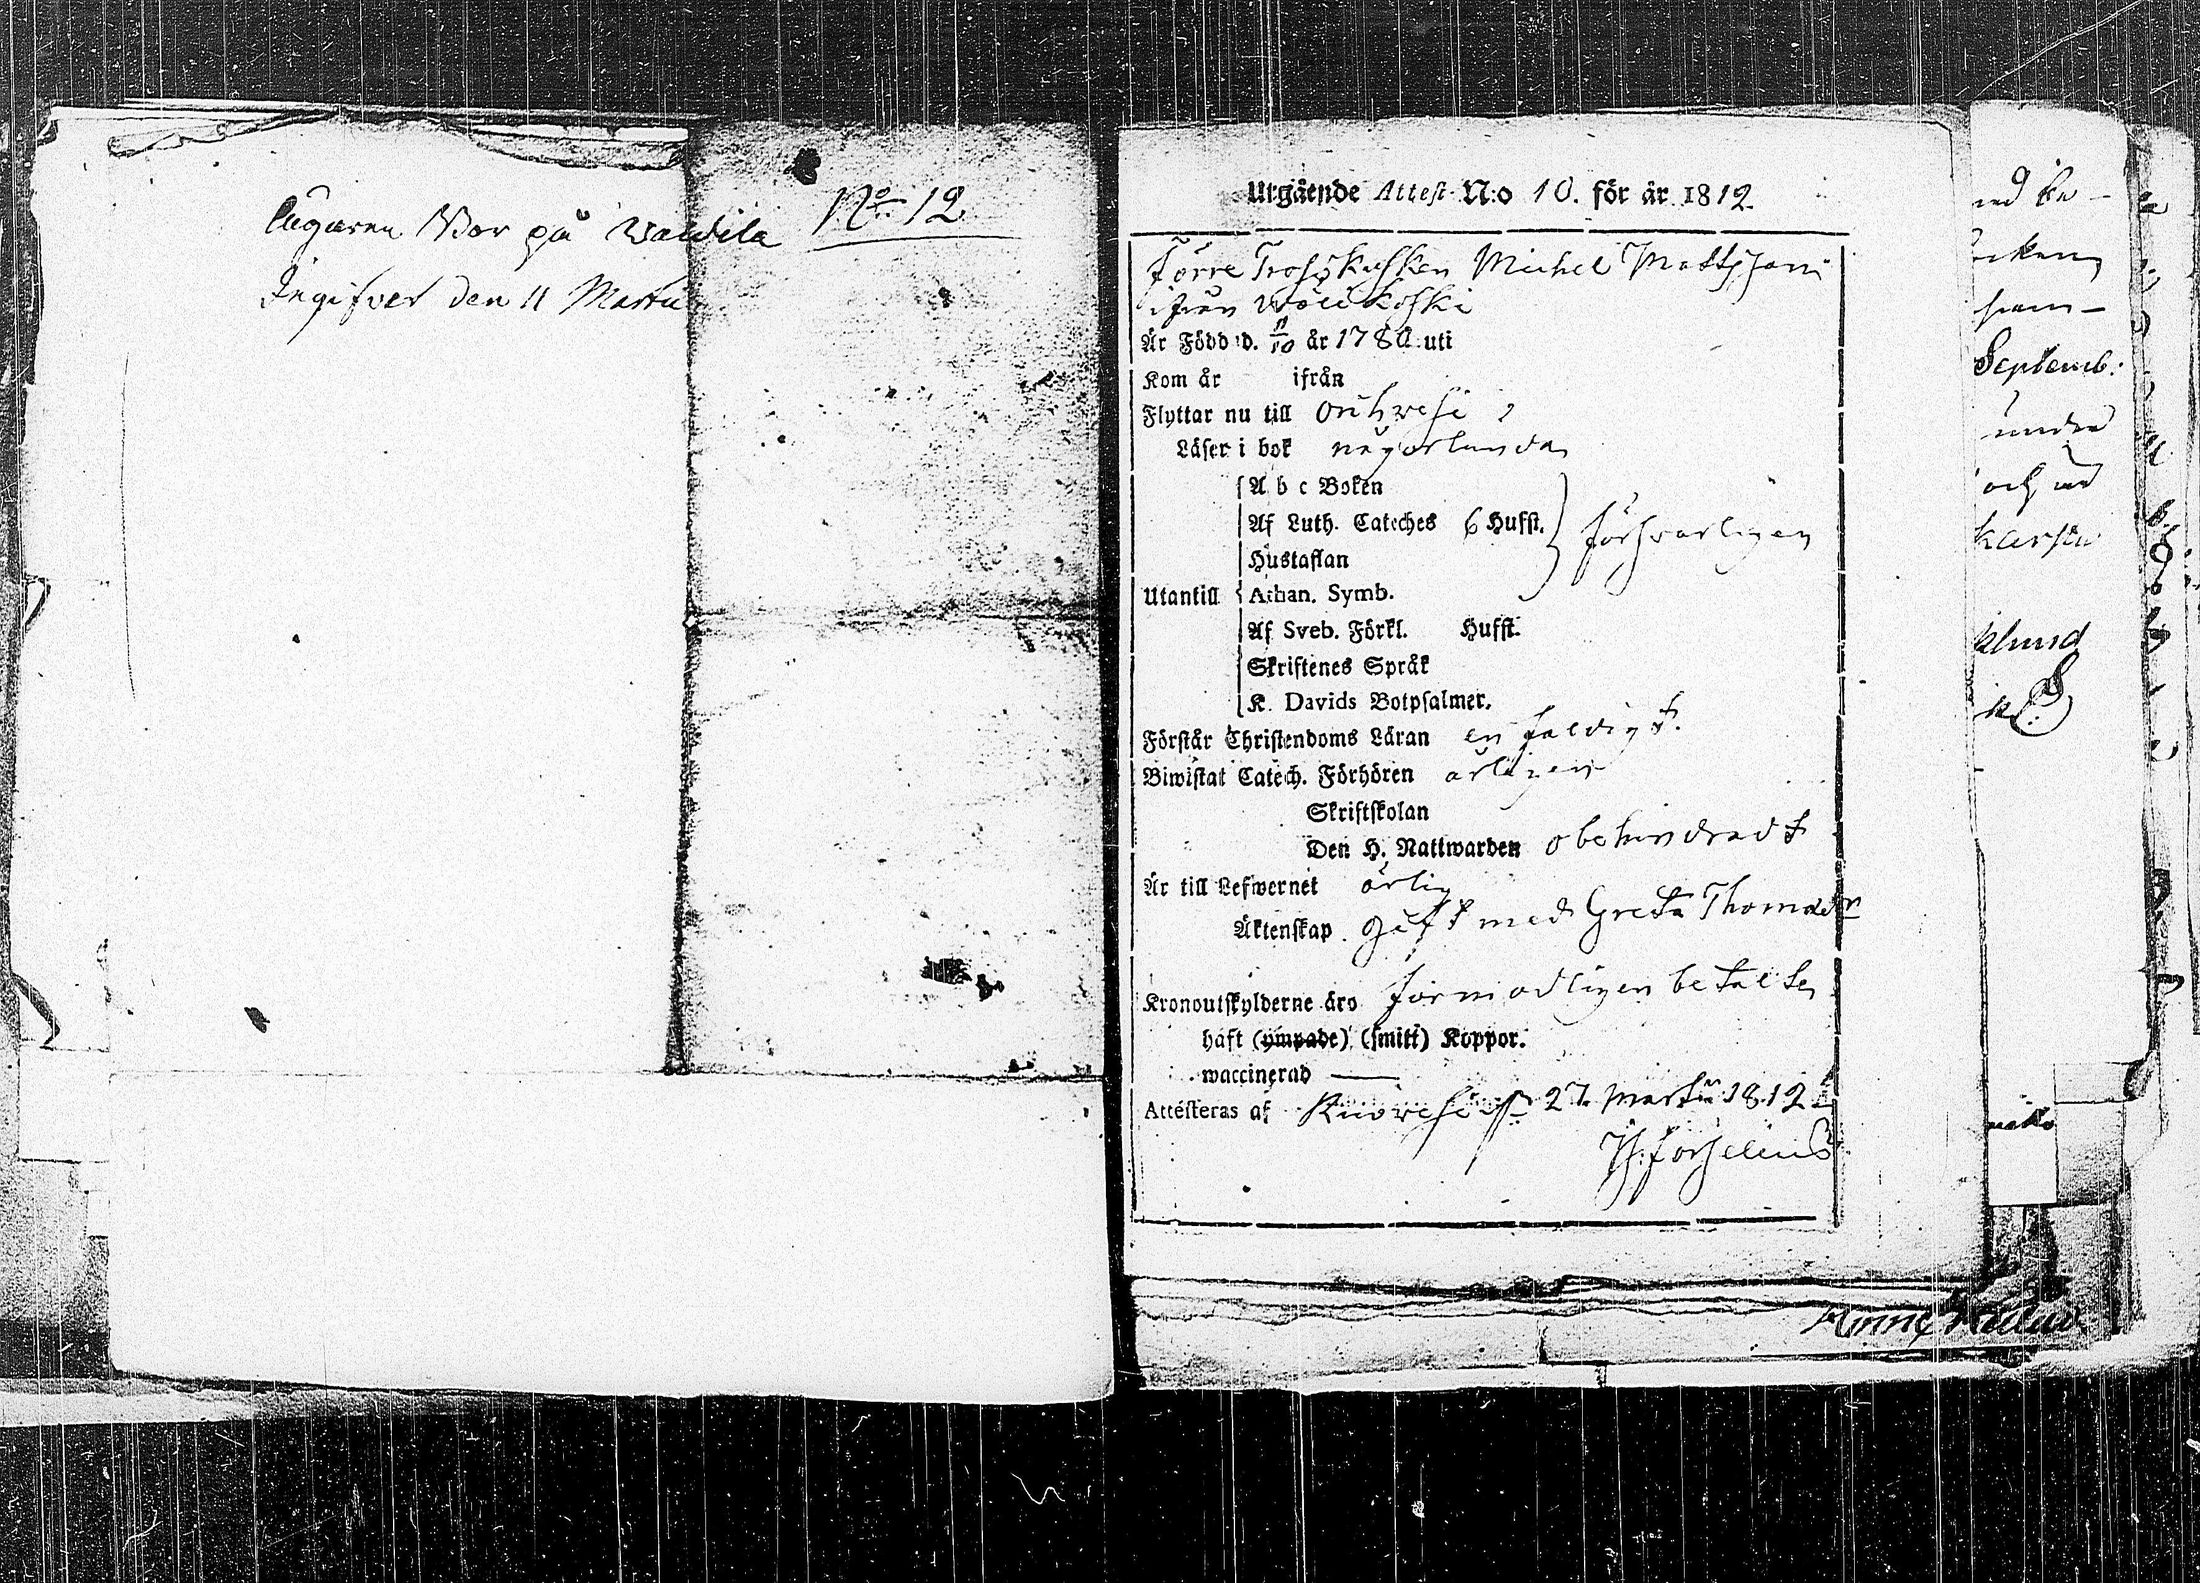 lägaren Bor på Waldila
Ingifvet den 11 Martii
No 12
Utgående Attest N:o 10. för år 1812
förre Michel Mattsson
ifrån
Är Född d. 11/10 år 1780 uti
Kom år ifrån
Flyttar nu till Orihvesi
Läser i bok någorlunda
A b c Boken
Af Luth. Cateches 6 Hufst. försvarligen
Hustaflan
Utantill Athan. Symb.
Af Sveb. Förkl. Hufst.
Skriftenes Språk
K. Davids Botpsalmer.
Förstår Christendoms Läran enfaldigt.
Biwistat Catech. Förhören årligen
Skriftskolan
Den H. Nattwarden obehindradt
Är till Lefwernet ärlig
Äktenskap gift med Greta Thomædr
Kronoutskylderne äro förmodligen betalte
haft (ympade) (smitt) Koppor.
waccinerad —
Attesteras af 27 Martii 1812
Forselius
Septemb:
undra
och
klund